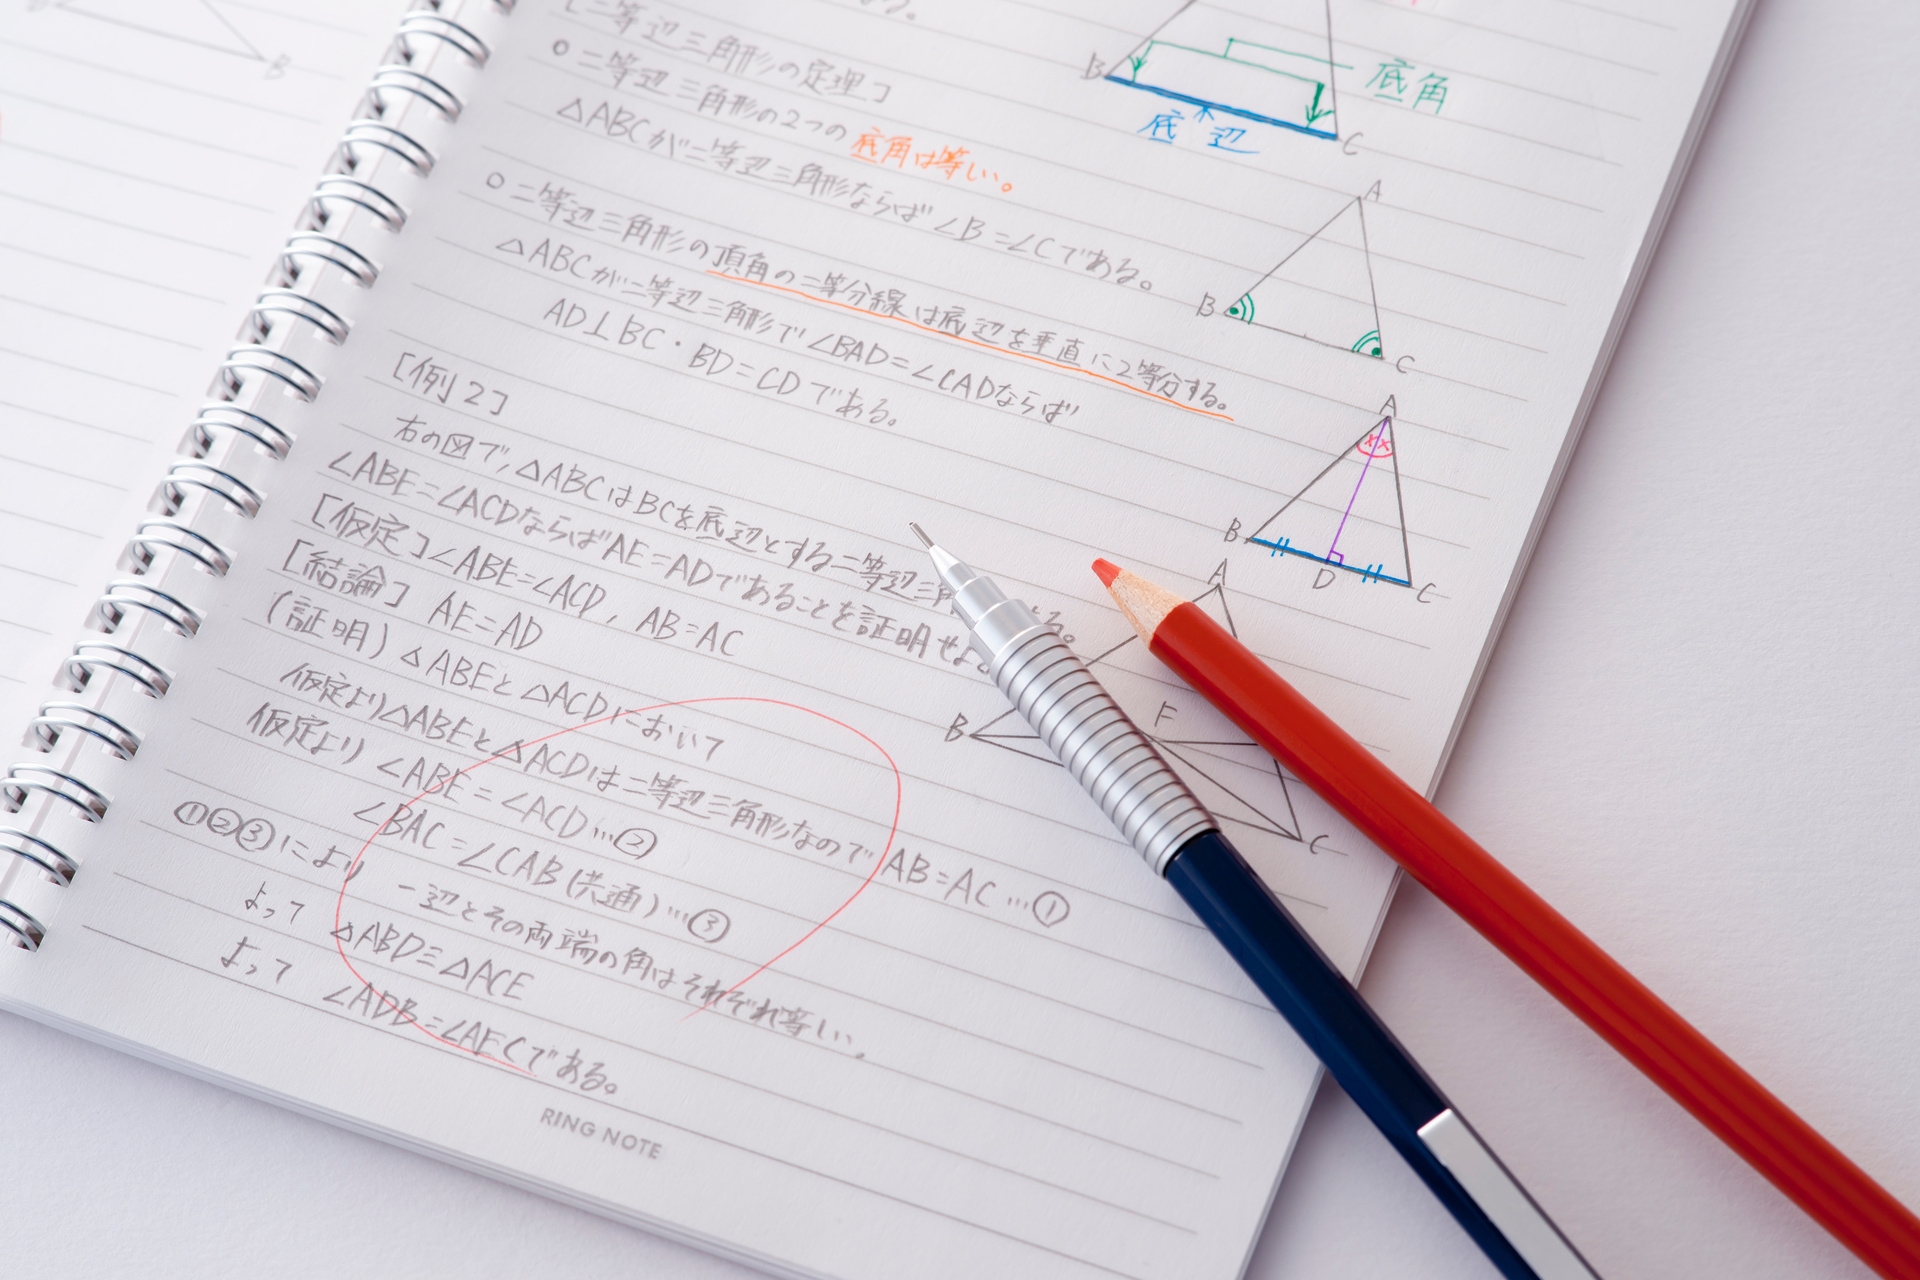 B
[二等辺三角形の定理]
○二等辺三角形の2つの底角は等しい。
△ABCが二等辺三角形ならば∠B=∠Cである。
○二等辺三角形の頂角の二等分線は底辺を垂直に2等分する。
△ABCが二等辺三角形で∠BAD=∠CADならば
AD⊥BC・BD=CDである。
[例2]
右の図で,△ABCはBCを底辺とする二等辺三角 る。
∠ABE=∠ACDならばAE=ADであることを証明せよ
[仮定]∠ABE=∠ACD, AB=AC
[結論] AE=AD
(証明) △ABEと△ACDにおいて
仮定より△ABEと△ACDは二等辺三角形なので AB=AC…①
仮定より ∠ABE=∠ACD…②
∠BAC=∠CAB(共通)…③
①②③により 一辺とその両端の角はそれぞれ等しい。
よって △ABD≡△ACE
よって ∠ADB=∠AECである。
RING NOTE
B
C
底角
底辺
A
B
C
A
B
D
C
A
B
F
C